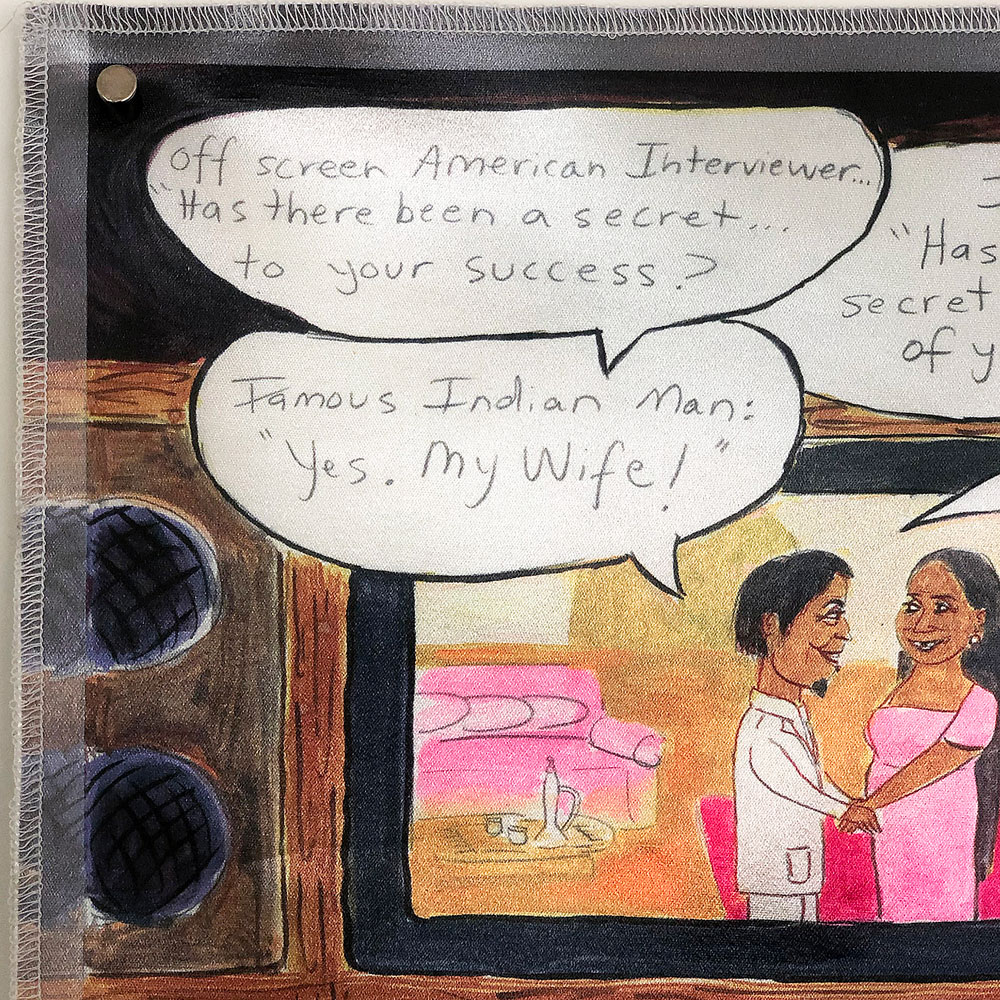 Off screen American Interviewer...
"Has there been a secret...
to your success?
Famous Indian Man:
"Yes. My Wife!"
"Has
secret
of y